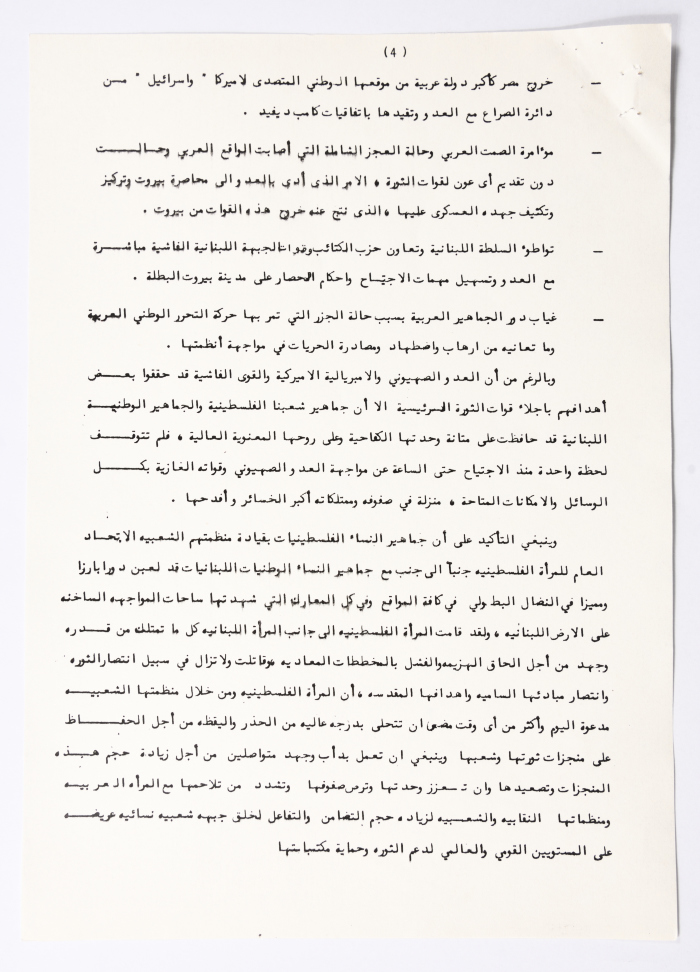 (4)
— خروج مصر كأكبر دولة عربية من موقعها الوطني المتصدى لاميركا " واسرائيل " مـــن
دائرة الصراع مع العدو وتقيدها باتفاقيات كامب ديفيد .
— موٴامرة الصمت العربي وحالة العجز الشاملة التي أصابت الواقع العربي وحـالـــــت
دون تقديم أى عون لقوات الثورة ، الامر الذى أدى بالعدو الى محاصرة بيروت وتركيز
وتكثيف جهده العسكرى عليها ، الذى نتج عنه خروج هذه القوات من بيروت .
— تواطوٴ السلطة اللبنانية وتعاون حزب الكتائب وقوات الجبهة اللبنانية الفاشية مباشــرة
مع العدو وتسهيل مهمات الاجتياح واحكام الحصار على مدينة بيروت البطلة .
— غياب دور الجماهير العربية بسبب حالة الجزر التي تمر بها حركة التحرر الوطني العربية
وما تعانيه من ارهاب واضطهاد ومصادرة الحريات في مواجهة أنظمتها .
وبالرغم من أن العدو الصهيوني والامبريالية الاميركية والقوى الفاشية قد حققوا بعــض
أهدافهم باجلاء قوات الثورة الرئيسية الا أن جماهير شعبنا الفلسطينية والجماهير الوطنيـــة
اللبنانية قد حافظت على متانة وحدتها الكفاحية وعلى روحها المعنوية العالية ، فلم تتوقــــف
لحظة واحدة منذ الاجتياح حتى الساعة عن مواجهة العدو الصهيوني وقواته الغازية بكـــــل
الوسائل والامكانات المتاحة ، منزلة في صفوفه وممتلكاته أكبر الخسائر وأفدحها .
وينبغي التأكيد على أن جماهير النساء الفلسطينيات بقيادة منظمتهم الشعبيه الاتحــاد
العام للمرأة الفلسطينيه جنباً الى جنب مع جماهير النساء الوطنيات اللبنانيات قد لعبن دورا بارزا
ومميزا في النضال البطولي في كافة المواقع وفي كل المعارك التي شهدتها ساحات المواجهه الساخنه
على الارض اللبنانيه ، ولقد قامت المرأة الفلسطينيه الى جانب المرأة اللبنانيه كل ما تمتلك من قـــدره
وجهد من أجل الحاق الهزيمه والفشل بالمخططات المعاديه ،وقاتلت ولا تزال في سبيل انتصار الثوره
وانتصار مبادئها الساميه واهدافها المقدسه ، أن المرأة الفلسطينيه ومن خلال منظمتها الشعبيــــه
مدعوة اليوم وأكثر من أى وقت مضى ان تتحلى بدرجه عاليه من الحذر واليقظه من أجل الحفــــاظ
على منجزات ثورتها وشعبها وينبغي ان تعمل بدأب وجهد متواصلين من أجل زيادة حجم هـــذه
المنجزات وتصعيدها وان تـعزز وحدتها وترص صفوفها وتشدد من تلاحمها مع المرأه العربيـــه
ومنظماتها النقابيه والشعبيه لزياده حجم التضامن والتفاعل لخلق جبهه شعبيه نسائيه عريضـــه
على المستويين القومي والعالمي لدعم الثوره وحماية مكتسباتها